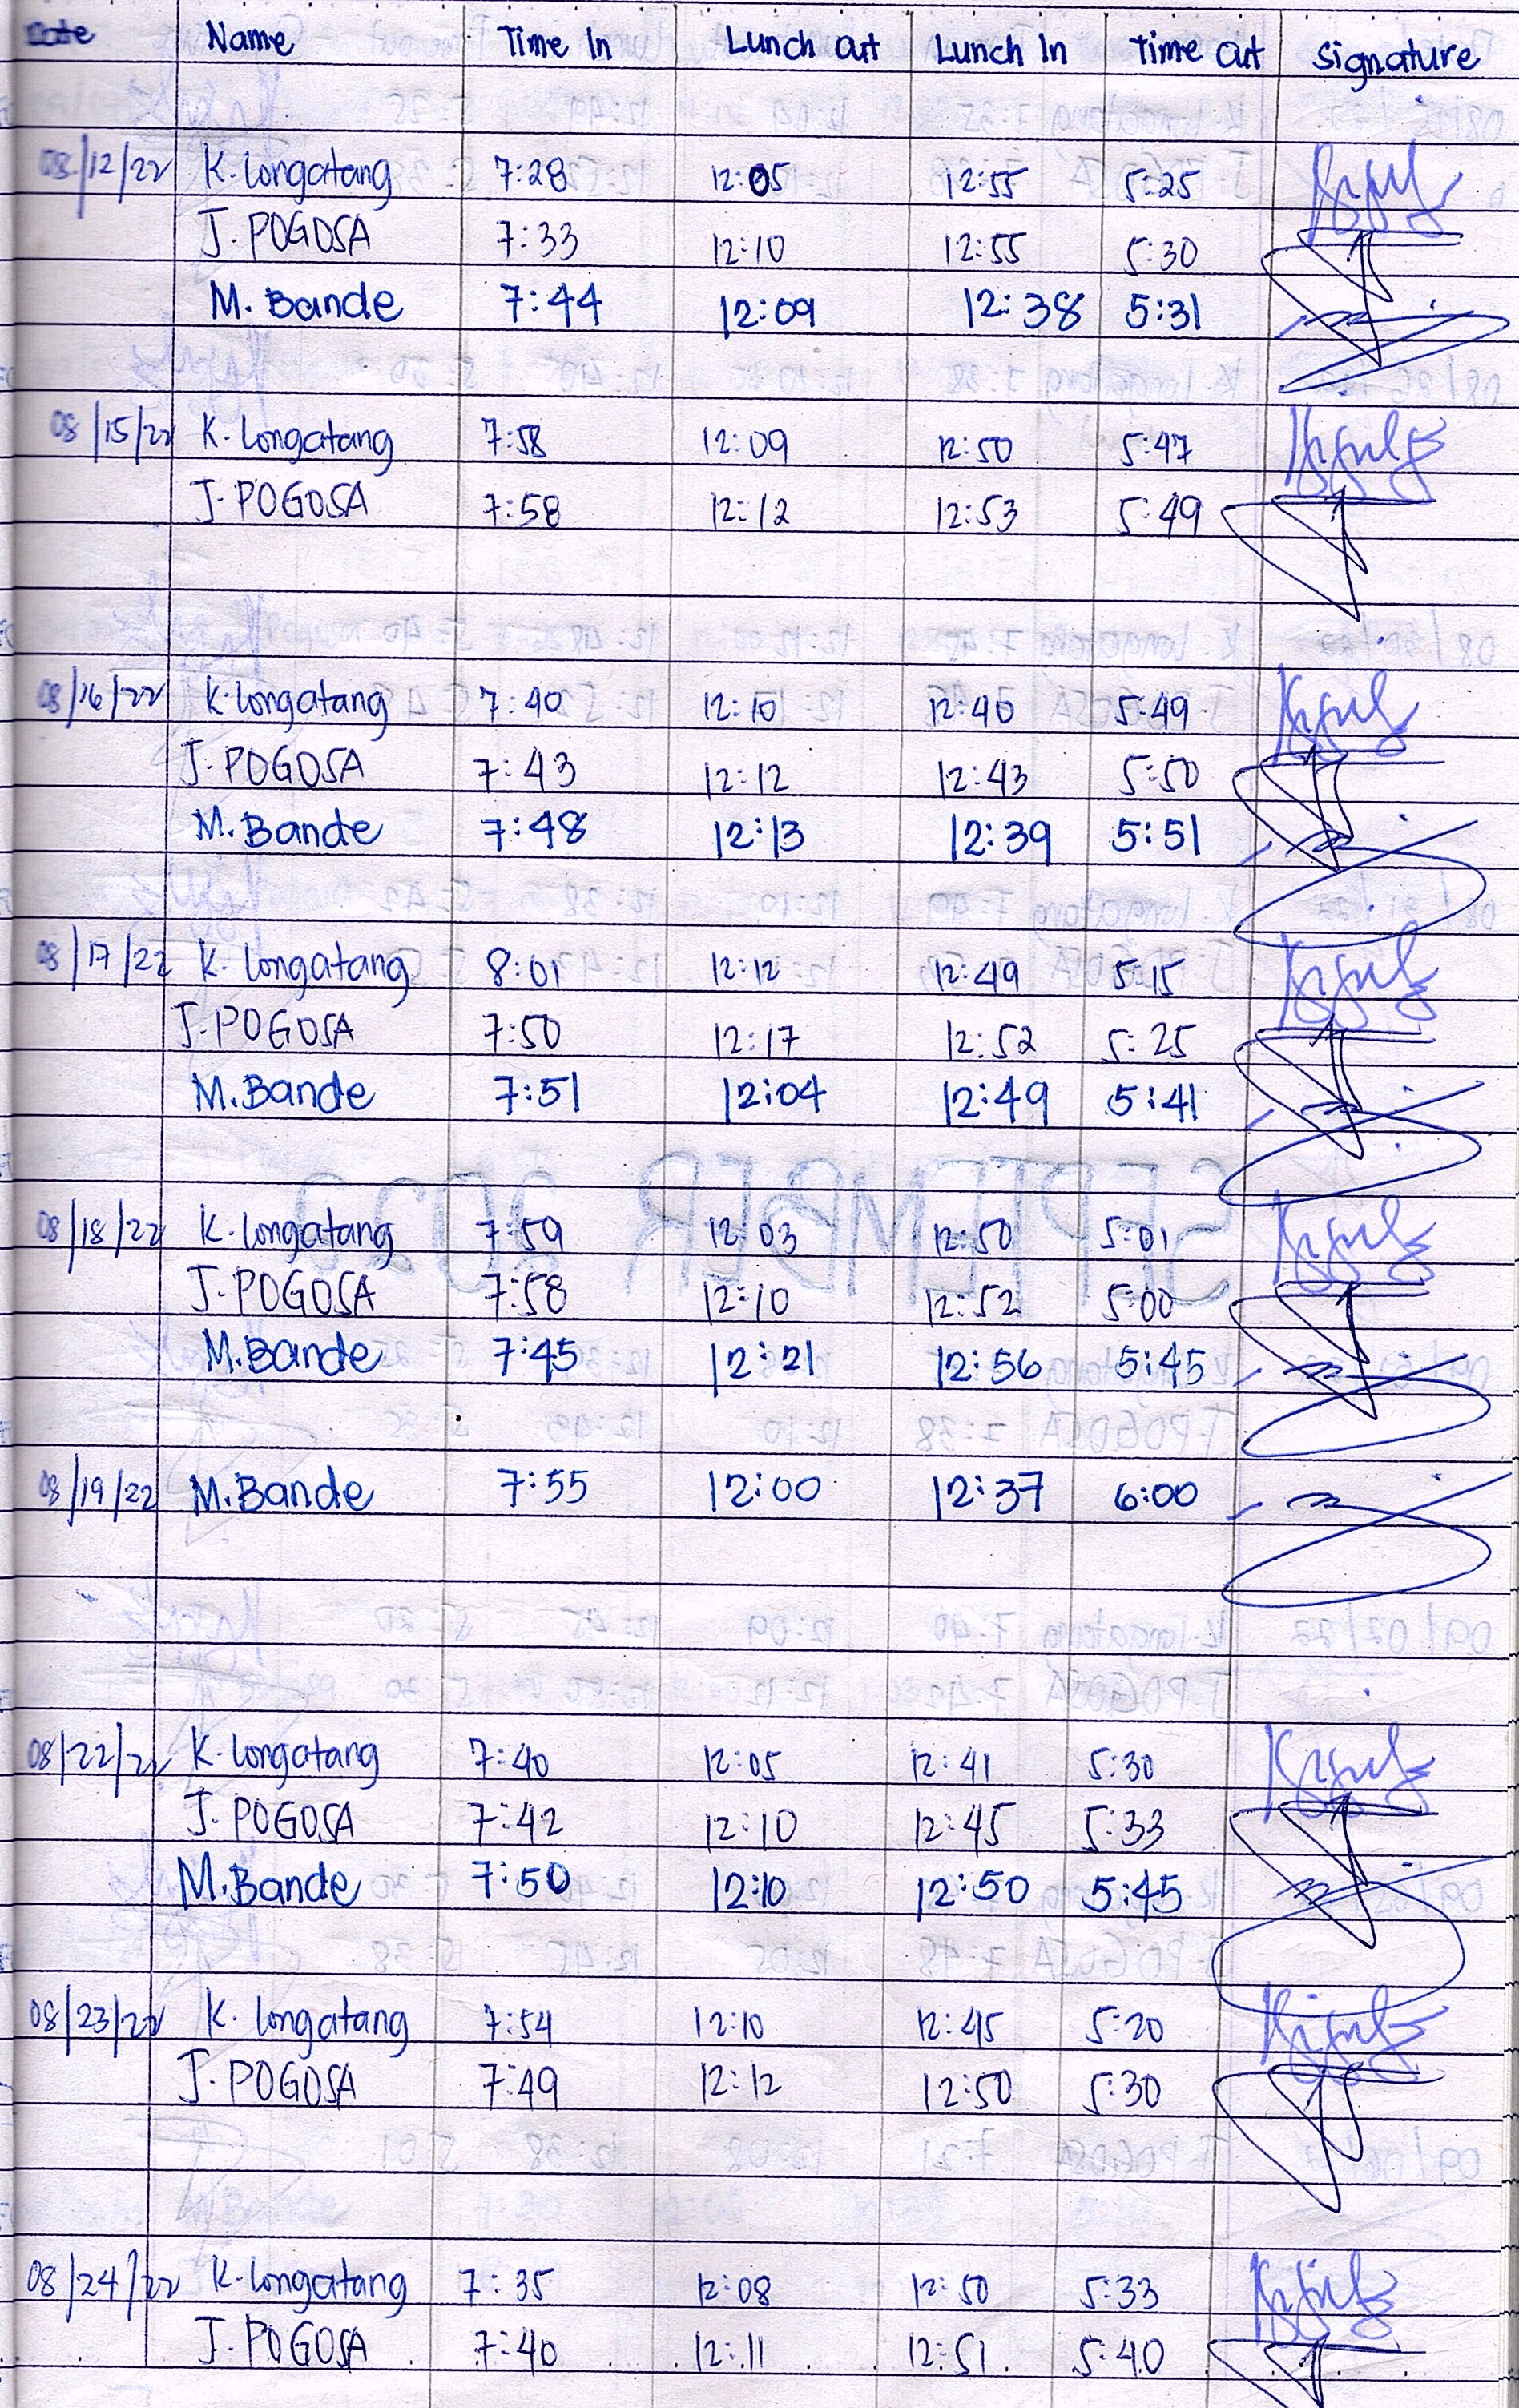 Date Name Time In Lunch out Lunch In Time out Signature
08/12/22 K. Longatang 7:28 12:05 12:55 5:25
J. POGOSA 7:33 12:10 12:55 5:30
M. Bande 7:44 12:09 12:38 5:31
08/15/22 K. Longatang 7:58 12:09 12:50 5:47
J. POGOSA 7:58 12:12 12:53 5:49
08/16/22 K. Longatang 7:40 12:10 12:40 5:49
J. POGOSA 7:43 12:12 12:43 5:50
M. Bande 7:48 12:13 12:39 5:51
08/17/22 K. Longatang 8:01 12:12 12:49 5:15
J. POGOSA 7:50 12:17 12:52 5:25
M. Bande 7:51 12:04 12:49 5:41
08/18/22 K. Longatang 7:59 12:03 12:50 5:01
J. POGOSA 7:58 12:10 12:52 5:00
M. Bande 7:45 12:21 12:56 5:45
08/19/22 M. Bande 7:55 12:00 12:37 6:00
08/22/22 K. Longatang 7:40 12:05 12:41 5:30
J. POGOSA 7:42 12:10 12:45 5:33
M. Bande 7:50 12:10 12:50 5:45
08/23/22 K. Longatang 7:54 12:10 12:45 5:20
J. POGOSA 7:49 12:12 12:50 5:30
08/24/22 K. Longatang 7:35 12:08 12:50 5:33
J. POGOSA 7:40 12:11 12:51 5:40